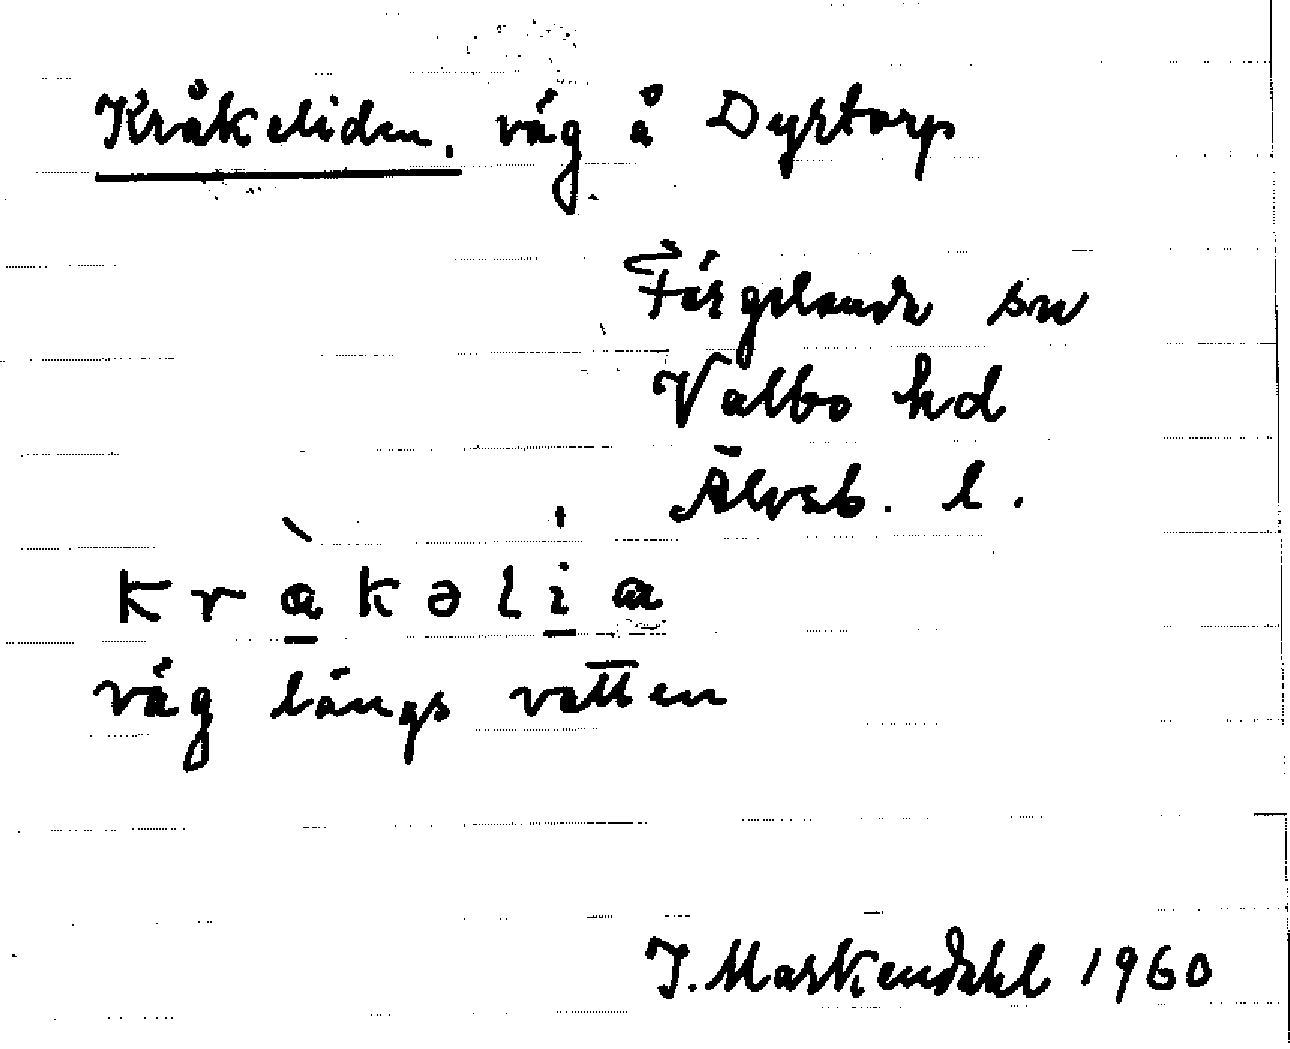 Kråkeliden, väg å Dyrtorp
Färgelanda sn
Valbo hd
Älvsb. l.
kràkəlia
väg längs vatten
J. Markendahl 1960